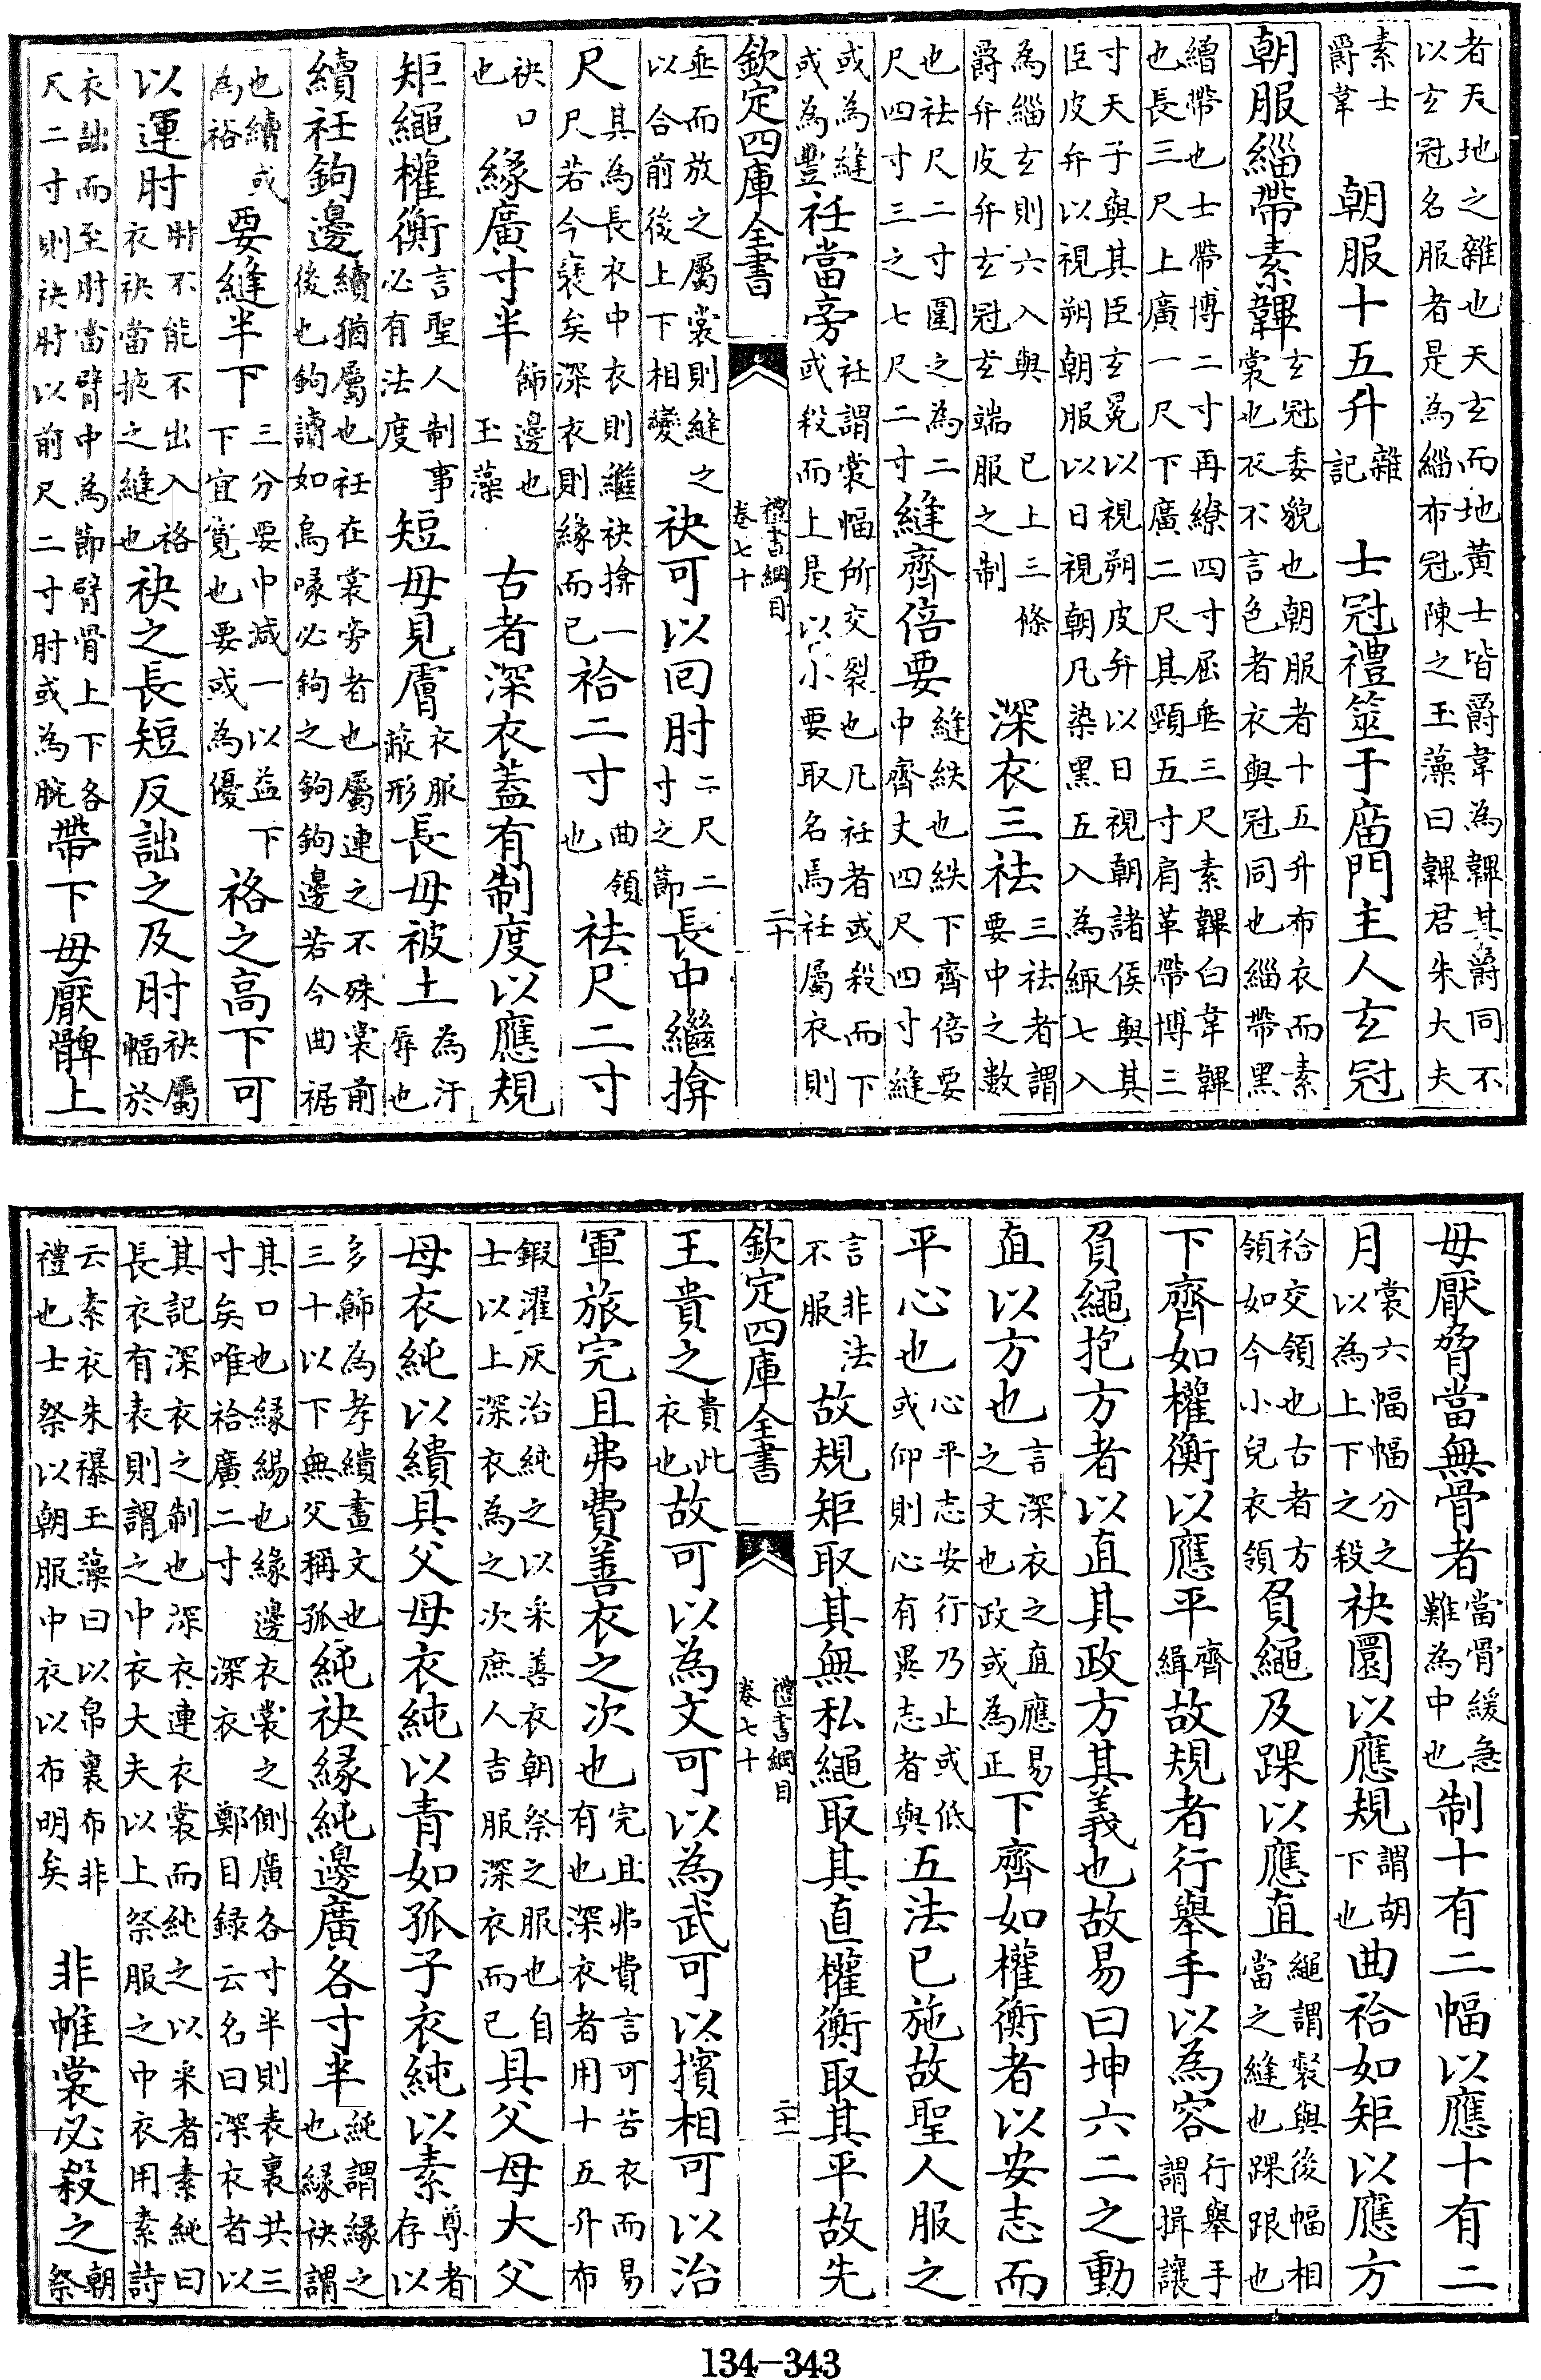 者天地之雜也天玄而地黃士皆爵韋為韠其爵同不
以玄冠名服者是為緇布冠陳之玉藻曰韠君朱大夫
素士
爵韋
朝服十五升
雜
記
士冠禮筮于廟門主人玄冠
朝服緇帶素韠
玄冠委貌也朝服者十五升布衣而素
裳也衣不言色者衣與冠同也緇帶黑
繒帶也士帶博二寸再繚四寸屈垂三尺素韠白韋韠
也長三尺上廣一尺下廣二尺其頸五寸肩革帶博三
寸天子與其臣玄冕以視朔皮弁以日視朝諸侯與其
臣皮弁以視朔朝服以日視朝凡染黑五入為緅七入
為緇玄則六入與
爵弁皮弁玄冠玄端
已上三條
服之制
深衣三袪
三袪者謂
要中之數
也袪尺二寸圍之為二
尺四寸三之七尺二寸
縫齊倍要
縫紩也紩下齊倍要
中齊丈四尺四寸縫
或為縫
或為豐
衽當旁
衽謂裳幅所交裂也凡衽者或殺而下
或殺而上是以小要取名焉衽屬衣則
欽定四庫全書
禮書綱目
卷七十
二十
垂而放之屬裳則縫之
以合前後上下相變
袂可以回肘
二尺二
寸之節
長中繼揜
尺
其為長衣中衣則繼袂揜一
尺若今褎矣深衣則緣而已
袷二寸
曲領
也
袪尺二寸
袂口
也
緣廣寸半
飾邊也
玉藻
古者深衣蓋有制度以應規
矩繩權衡
言聖人制事
必有法度
短毋見膚
衣服
蔽形
長毋被土
為汙
辱也
續衽鉤邊
續猶屬也衽在裳旁者也屬連之不殊裳前
後也鉤讀如鳥喙必鉤之鉤鉤邊若今曲裾
也續或
為裕
要縫半下
三分要中減一以益下
下宜寬也要或為優
袼之高下可
以運肘
肘不能不出入袼
衣袂當掖之縫也
袂之長短反詘之及肘
袂屬
幅於
衣詘而至肘當臂中為節臂骨上下各
尺二寸則袂肘以前尺二寸肘或為腕
帶下毋厭髀上
毋厭脅當無骨者
當骨緩急
難為中也
制十有二幅以應十有二
月
裳六幅幅分之
以為上下之殺
袂圜以應規
謂胡
下也
曲袷如矩以應方
袷交領也古者方
領如今小兒衣領
負繩及踝以應直
繩謂裻與後幅相
當之縫也踝跟也
下齊如權衡以應平
齊
緝
故規者行舉手以為容
行舉手
謂揖讓
負繩抱方者以直其政方其義也故易曰坤六二之動
直以方也
言深衣之直應易
之文也政或為正
下齊如權衡者以安志而
平心也
心平志安行乃止或低
或仰則心有異志者與
五法已施故聖人服之
言非法
不服
故規矩取其無私繩取其直權衡取其平故先
欽定四庫全書
禮書綱目
卷七十
二十一
王貴之
貴此
衣也
故可以為文可以為武可以擯相可以治
軍旅完且弗費善衣之次也
完且弗費言可苦衣而易
有也深衣者用十五升布
鍜濯灰治純之以采善衣朝祭之服也自
士以上深衣為之次庶人吉服深衣而已
具父母大父
母衣純以繢具父母衣純以青如孤子衣純以素
尊者
存以
多飾為孝繢畫文也
三十以下無父稱孤
純袂緣純邊廣各寸半
純謂緣之
也緣袂謂
其口也緣緆也緣邊衣裳之側廣各寸半則表裏共三
寸矣唯袷廣二寸
深衣
鄭目録云名曰深衣者以
其記深衣之制也深衣連衣裳而純之以采者素純曰
長衣有表則謂之中衣大夫以上祭服之中衣用素詩
云素衣朱襮玉藻曰以帛裏布非
禮也士祭以朝服中衣以布明矣
非帷裳必殺之
朝
祭
134-343